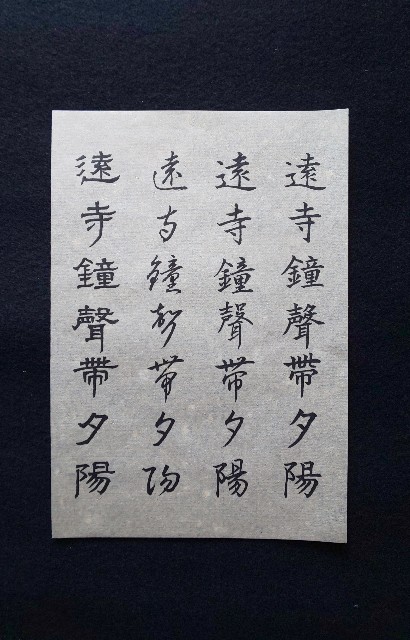 遠寺鐘聲帶夕陽
遠寺鐘聲帶夕陽
遠寺鐘聲帶夕陽
遠寺鐘聲帶夕陽